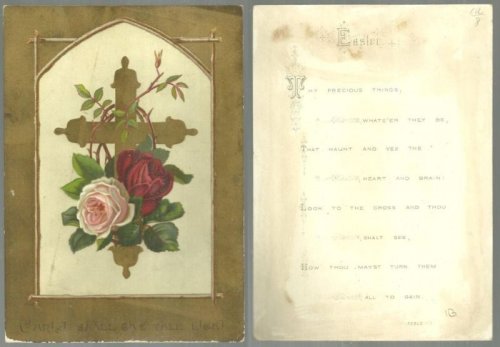 CHRIST SHALL GIVE THEE LIGHT
Easter
THY PRECIOUS THINGS,
WHATE'ER THEY BE,
THAT HAUNT AND VEX THE
HEART AND BRAIN:
LOOK TO THE CROSS AND THOU
SHALT SEE,
HOW THOU MAYST TURN THEM
ALL TO GAIN.
KEBLE